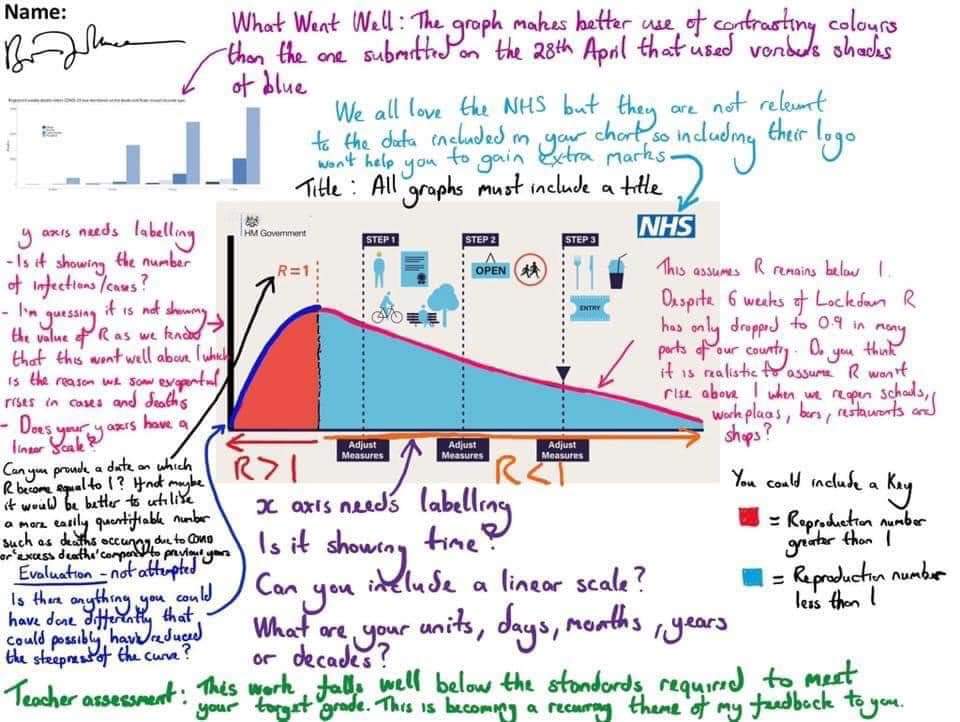 Name:
What Went Well: The graph makes better use of contrasting colours
than the one submitted on the 28th April that used various shades
of blue
We all love the NHS but they are not relevant
to the data included in your chart so including their logo
won't help you to gain extra marks
Title: All graphs must include a title
HM Government
NHS
STEP 1
STEP 2
STEP 3
OPEN
ENTRY
R=1
y axis needs labelling
- Is it showing the number
of infections/cases?
- I'm guessing it is not showing
the value of R as we know
that this went well above 1 which
is the reason we saw exponential
rises in cases and deaths
- Does your y axis have a
linear scale?
This assumes R remains below 1.
Despite 6 weeks of Lockdown R
has only dropped to 0.9 in many
parts of our country. Do you think
it is realistic to assume R won't
rise above 1 when we reopen schools,
workplaces, bars, restaurants and
shops?
Adjust
Measures
Adjust
Measures
Adjust
Measures
R>1
R<1
Can you provide a date on which
R became equal to 1? If not maybe
it would be better to utilise
a more easily quantifiable number
such as deaths occurring due to COVID
or 'excess deaths' compared to previous years
Evaluation - not attempted
Is there anything you could
have done differently that
could possibly have reduced
the steepness of the curve?
x axis needs labelling
Is it showing time?
Can you include a linear scale?
What are your units, days, months, years
or decades?
You could include a key
= Reproduction number
greater than 1
= Reproduction number
less than 1
Teacher assessment: This work falls well below the standards required to meet
your target grade. This is becoming a recurring theme of my feedback to you.